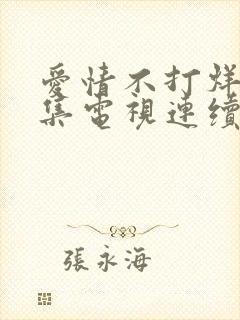 愛情不打烊
集電視連續
張永海